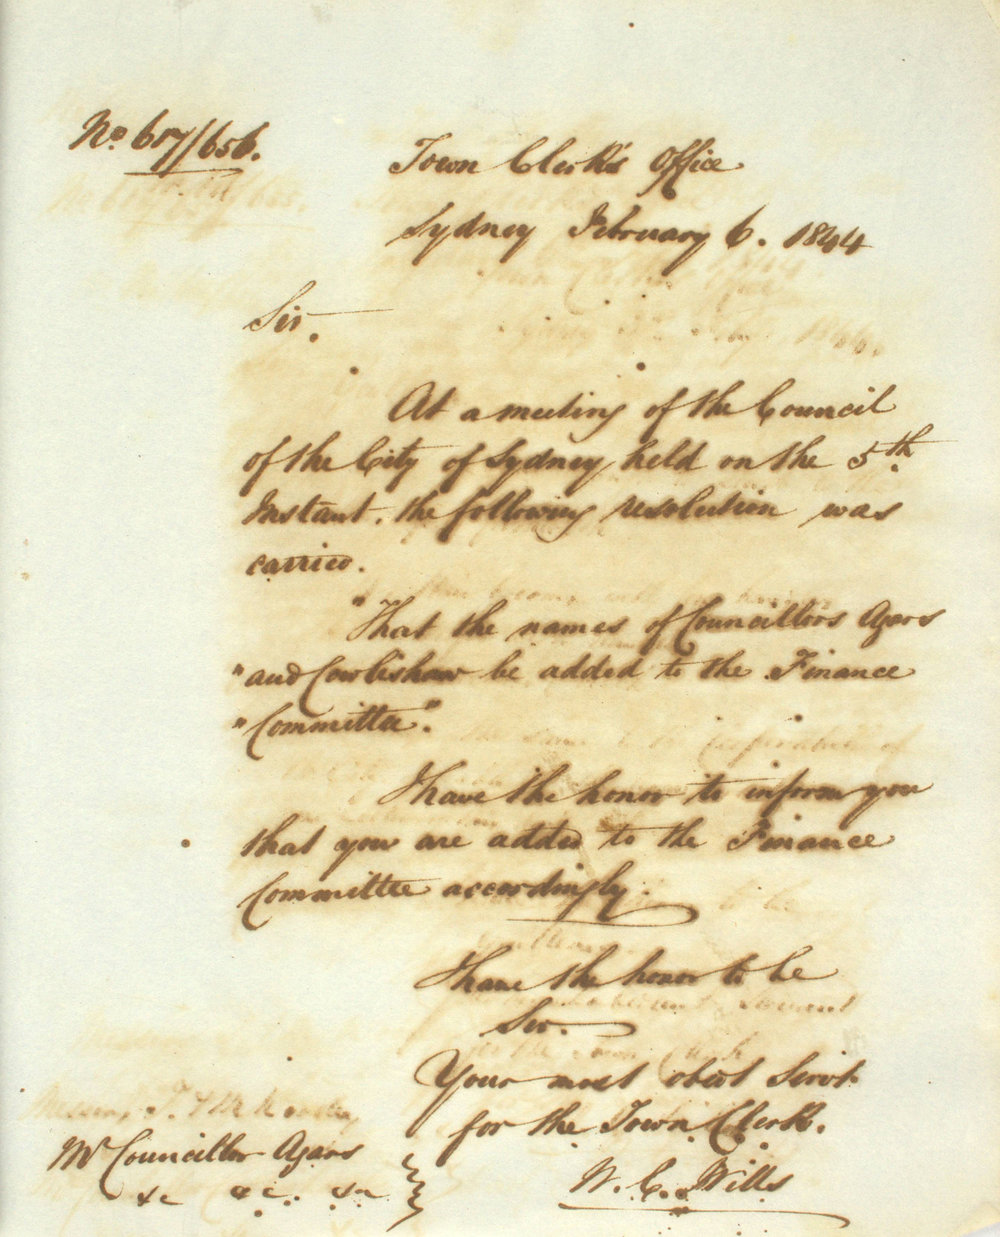 No 617/656.
Town Clerk's Office
Sydney February 6. 1844
Sir.
At a meeting of the Council
of the City of Sydney held on the 5th.
Instant. the following resolution was
carried.
"That the names of Councillors Agars
"and Cowlishaw be added to the Finance
"Committee".
I have the honor to inform you
that you are added to the Finance
Committee accordingly.
I have the honor to be
Sir.
Your most obedt Servt.
for the Town Clerk.
W. C. Wills
Mr Councillor Agars
&c &c. &c